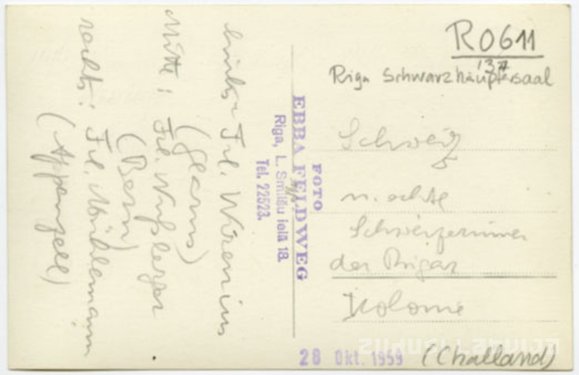 R0611
'37
Riga Schwarzhäuptersaal
links: Frl. Wirenius
(Glarus)
Mitte: Frl. Nußberger
(Bern)
rechts: Frl. Mühlemann
(Appenzell)
FOTO
EBBA FELDWEG
Riga, L. Smilšu ielā 18.
Tel. 22523.
Schweiz
u. echte
Schweizerinnen
der Rigaer
Kolonie
(Challand)
28 Okt. 1959